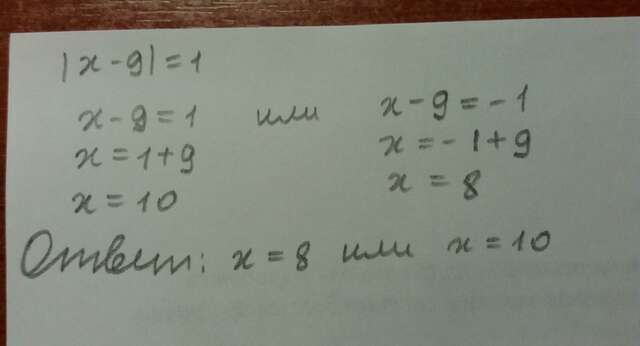 |x-9|=1
x-9=1 или x-9=-1
x=1+9 x=-1+9
x=10 x=8
Ответ: x=8 или x=10